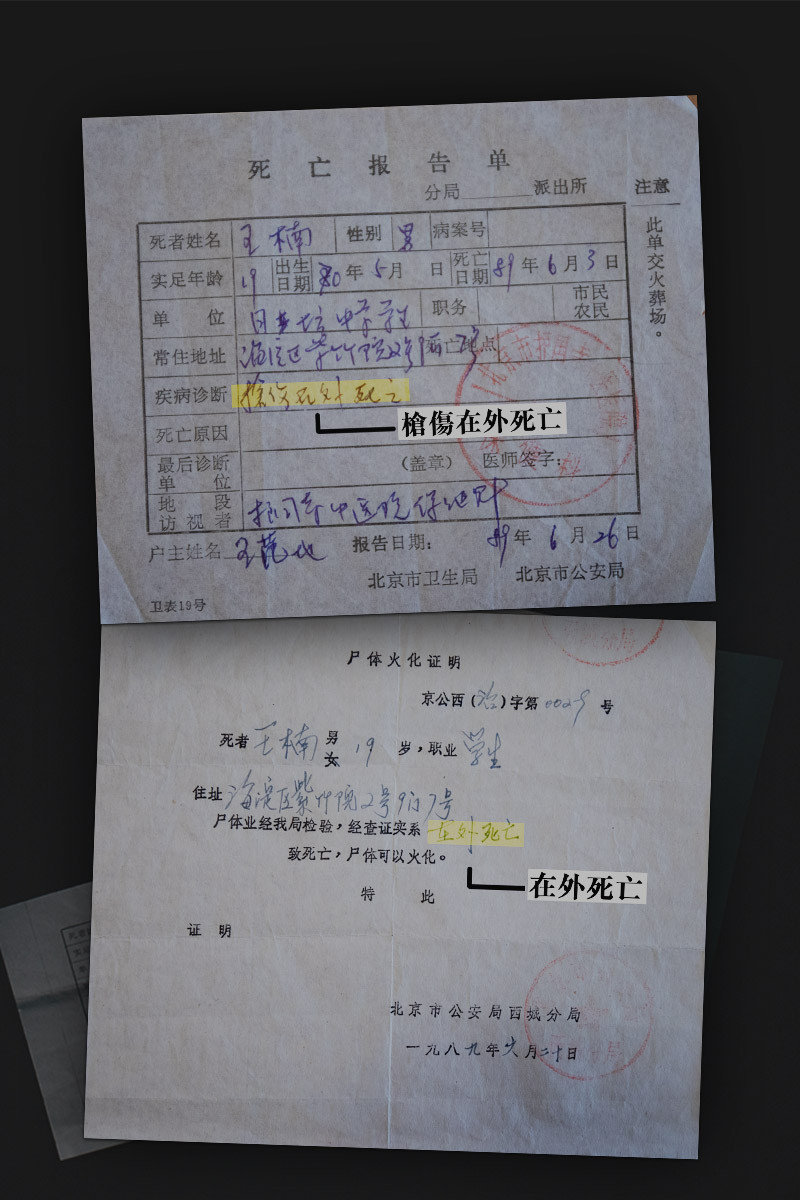 死亡报告单
分局 派出所
注意
此单交火葬场。
死者姓名 王楠 性别 男 病案号
实足年龄 19 出生日期 70年5月 日 死亡日期 89年6月3日
单位 月坛中学学生 职务 市民 农民
常住地址 海淀区紫竹院2号9门7号 死亡地点
疾病诊断 槍伤在外死亡
槍傷在外死亡
死亡原因
最后诊断单位 (盖章) 医师签字:
地段访视者 护国寺中医院保健科
户主姓名 王 报告日期: 89年6月26日
北京市卫生局 北京市公安局
卫表19号
尸体火化证明
京公西(治)字第0029号
死者 王楠 男 女 19 岁,职业 学生
住址 海淀区紫竹院2号9门7号
尸体业经我局检验,经查证实系 在外死亡
致死亡,尸体可以火化。
在外死亡
特此
证明
北京市公安局西城分局
一九八九年六月二十日